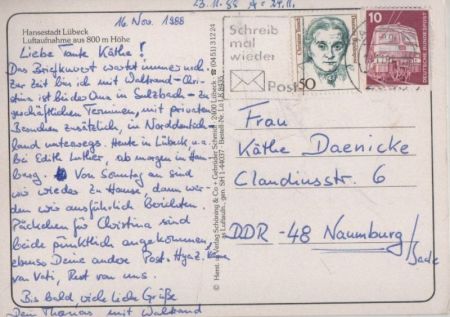 23.11.88 A: 24.11.
16. Nov. 1988
Hansestadt Lübeck
Luftaufnahme aus 800 m Höhe
Liebe Tante Käthe!
Das Briefkuvert wartet immer noch.
Zur Zeit bin ich mit Waltraud – Chri-
stina ist bei der Oma in Sulzbach – zu
geschäftlichen Terminen, mit privaten
Besuchen zusätzlich, in Norddeutsch-
land unterwegs. Heute in Lübeck u.a.
bei Edith Luther, ab morgen in Ham-
burg. Von Sonntag an sind
wir wieder zu Hause, dann wer-
den wir ausführlich berichten.
Päckchen für Christina sind
beide pünktlich angekommen,
ebenso Deine andere Post. Hyaz.
von Vati, Rest von uns.
Bis bald, viele liebe Grüße
Dein Thomas mit Waltraud
Schöning & Co + Gebrüder Schmidt · 2400 Lübeck ☎ (04 51) 3 12 24
Schreib
mal
wieder
Post
50
10
DEUTSCHE BUNDESPOST
Frau
Käthe Daenicke
Claudiusstr. 6
DDR - 48 Naumburg/
Saale